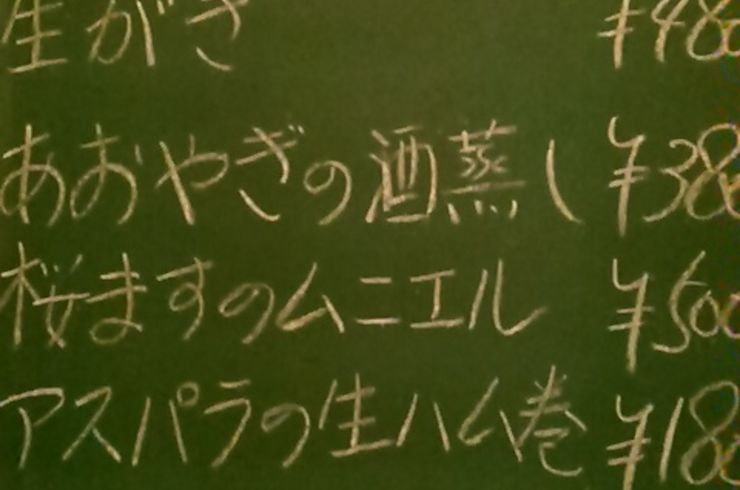 生がき ¥48
あおやぎの酒蒸し ¥38
桜ますのムニエル ¥500
アスパラの生ハム巻 ¥18